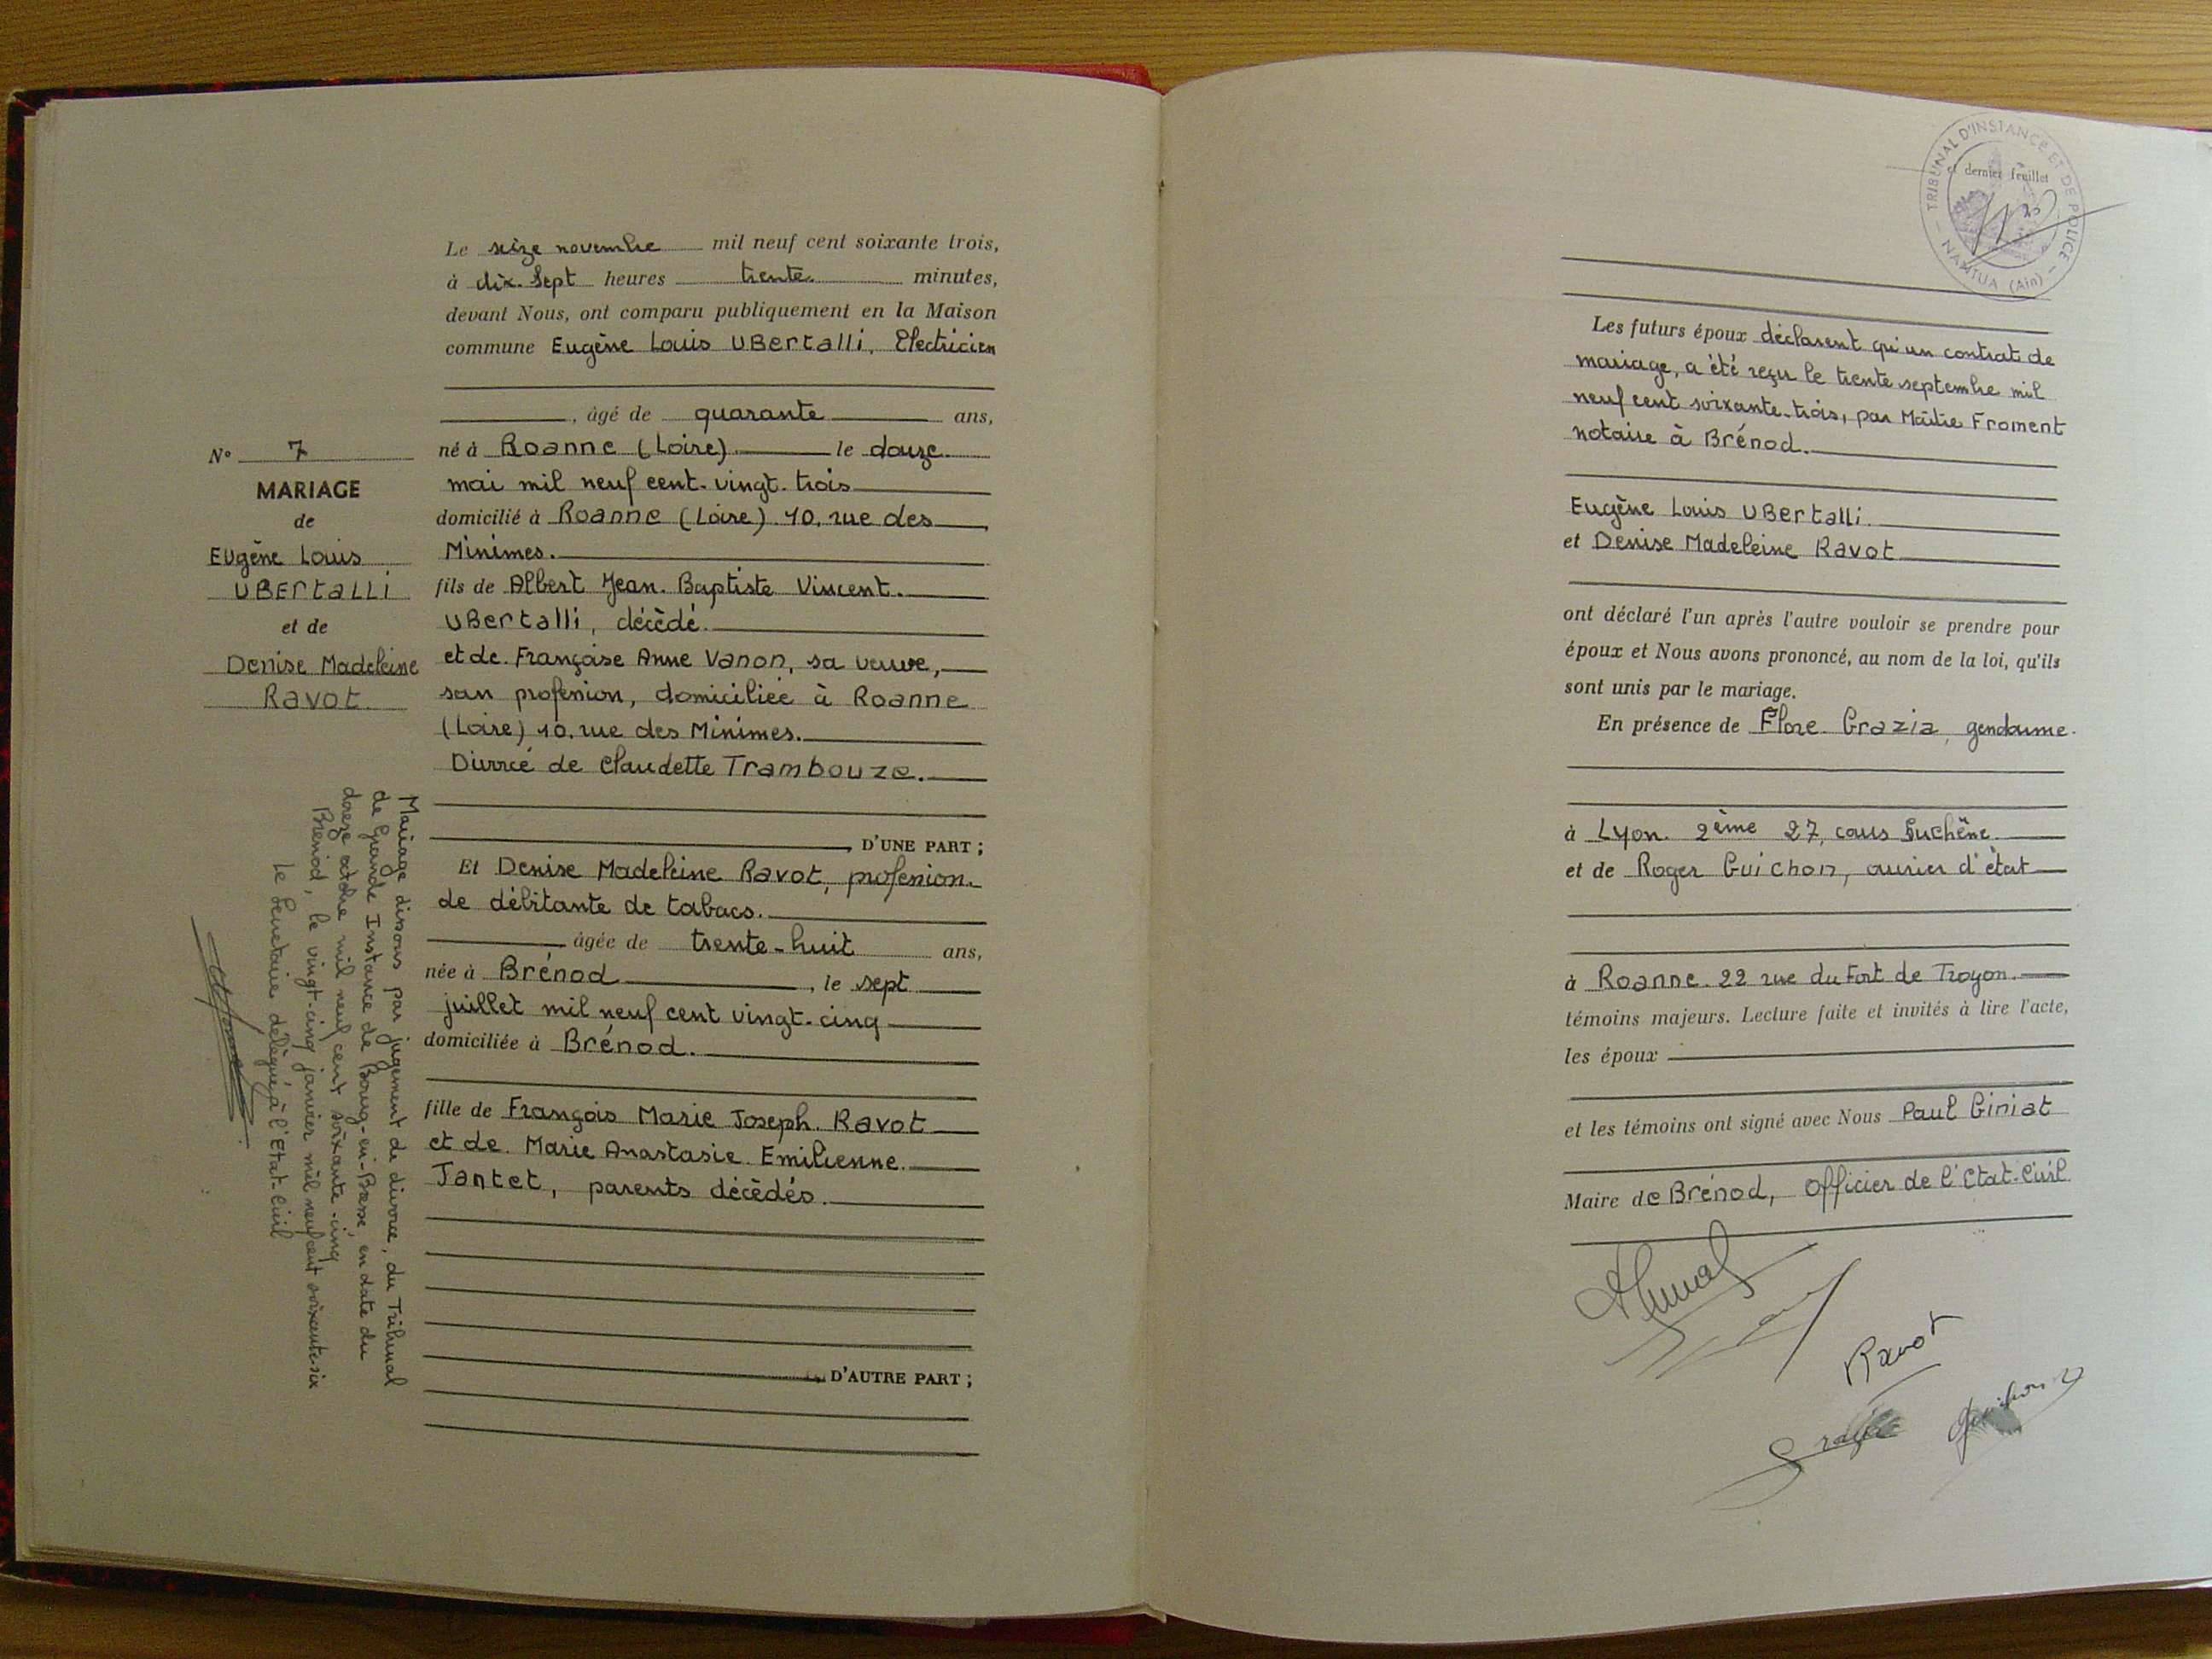 Le seize novembre mil neuf cent soixante trois,
à dix-sept heures trente minutes,
devant Nous, ont comparu publiquement en la Maison
commune Eugène Louis UBertalli, Electricien
, âgé de quarante ans,
né à Roanne (Loire) le douze
mai mil neuf cent-vingt-trois
domicilié à Roanne (Loire) 10, rue des
Minimes.
fils de Albert Jean-Baptiste Vincent
UBertalli, décédé.
et de Françoise Anne Vanon, sa veuve,
san profession, domiciliée à Roanne
(Loire) 10, rue des Minimes.
Divorcé de Claudette Trambouze.
, D'UNE PART ;
Et Denise Madeleine Ravot, profession
de débitante de tabacs.
âgée de trente-huit ans,
née à Brénod, le sept
juillet mil neuf cent vingt-cinq
domiciliée à Brénod.
fille de François Marie Joseph Ravot
et de Marie Anastasie Emilienne
Jantet, parents décédés.
D'AUTRE PART ;
N° 7
MARIAGE
de
Eugène Louis
UBErtaLLi
et de
Denise Madeleine
Ravot.
Mariage dissous par jugement de divorce, du Tribunal
de Grande Instance de Bourg-en-Bresse, en date du
douze octobre mil neuf cent soixante-cinq
Brénod, le vingt-cinq janvier mil neuf cent soixante-six
Le Secrétaire délégué à l'Etat-Civil
TRIBUNAL D'INSTANCE ET DE POLICE
et dernier feuillet
NANTUA (Ain)
Les futurs époux déclarent qu'un contrat de
mariage, a été reçu le trente septembre mil
neuf cent soixante-trois, par Maître Froment
notaire à Brénod.
Eugène Louis UBertalli
et Denise Madeleine Ravot
ont déclaré l'un après l'autre vouloir se prendre pour
époux et Nous avons prononcé, au nom de la loi, qu'ils
sont unis par le mariage.
En présence de Flore Grazia, gendarme
à Lyon 2ème 27, cours Suchène
et de Roger Guichon, ouvrier d'état
à Roanne 22 rue du Fort de Troyon.
témoins majeurs. Lecture faite et invités à lire l'acte,
les époux
et les témoins ont signé avec Nous Paul Giniat
Maire de Brénod, Officier de l'Etat-Civil
Ravot
Guichon